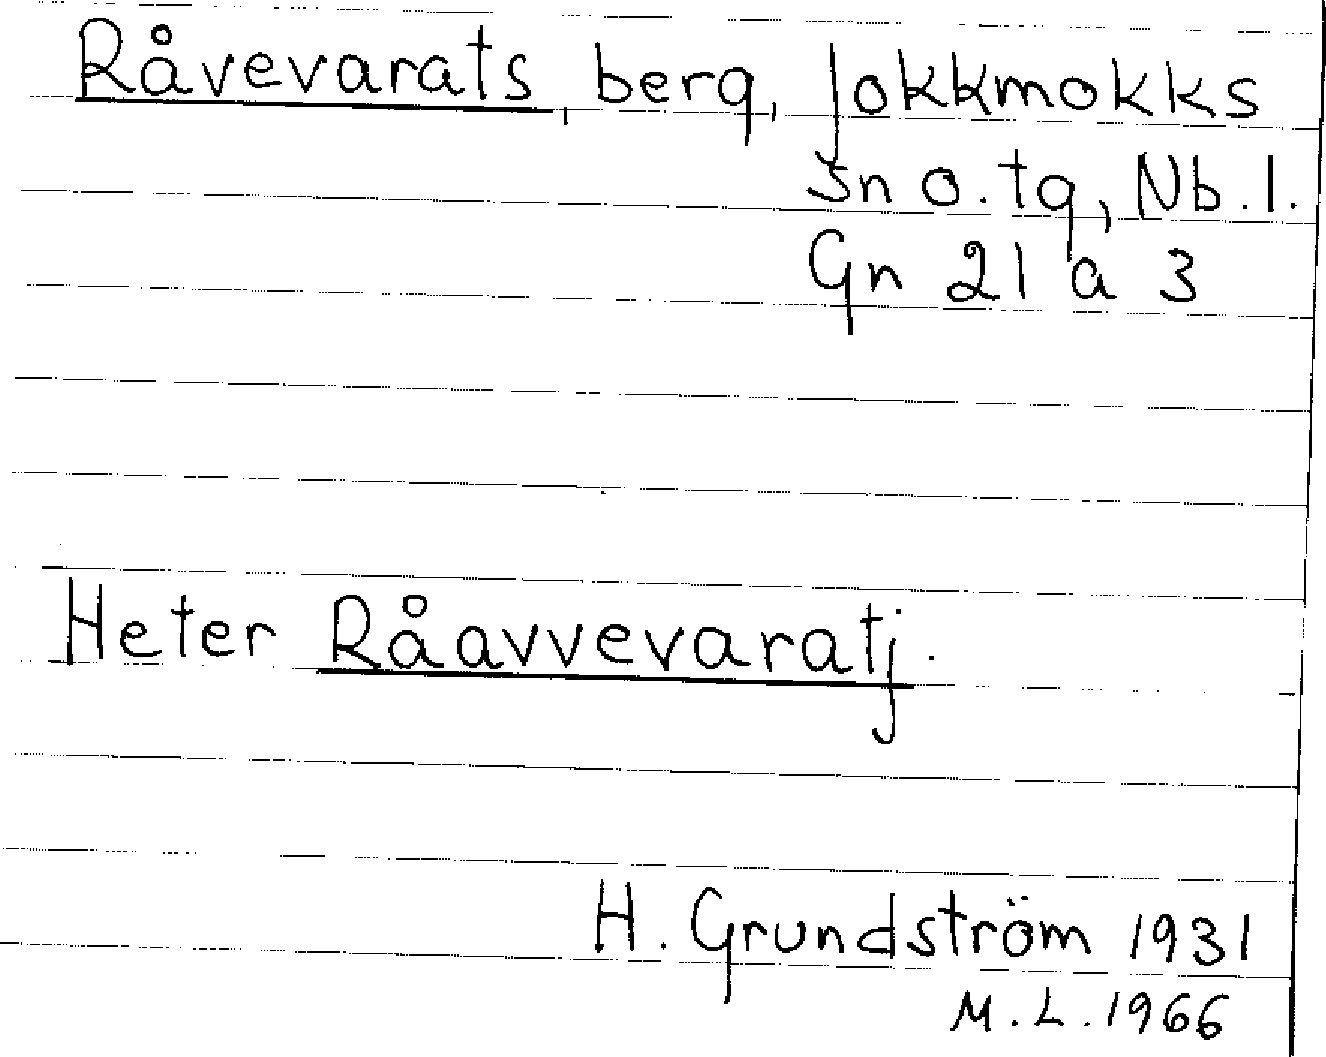 Råvevarats, berg, Jokkmokks
sn o. tg, Nb. l.
Gn 21 a 3
Heter Råavvevaratj.
H. Grundström 1931
M. L. 1966